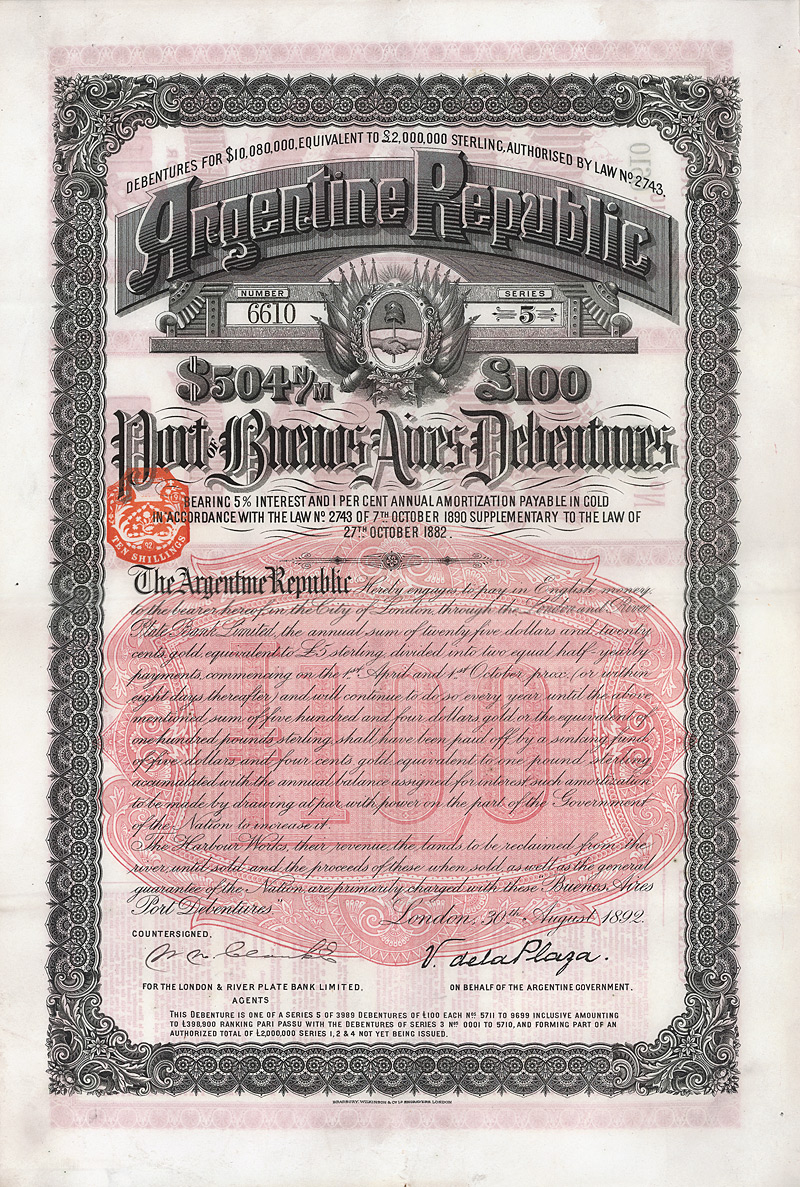 DEBENTURES FOR $10,080,000, EQUIVALENT TO £2,000,000 STERLING, AUTHORISED BY LAW Nº 2743.
Argentine Republic
NUMBER
6610
SERIES
5
$504 N/M £100
Port of Buenos Aires Debentures
BEARING 5% INTEREST AND 1 PER CENT ANNUAL AMORTIZATION PAYABLE IN GOLD
IN ACCORDANCE WITH THE LAW Nº 2743 OF 7TH OCTOBER 1890 SUPPLEMENTARY TO THE LAW OF
27TH OCTOBER 1882.
TEN SHILLINGS
The Argentine Republic Hereby engages to pay in English money
to the bearer hereof in the City of London, through the London and River
Plate Bank Limited, the annual sum of twenty five dollars and twenty
cents gold, equivalent to £5 sterling, divided into two equal half-yearly
payments, commencing on the 1st April and 1st October, prox. (or within
eight days thereafter) and will continue to do so every year until the above
mentioned sum of five hundred and four dollars gold or the equivalent of
one hundred pounds sterling, shall have been paid off, by a sinking fund
of five dollars and four cents gold, equivalent to one pound sterling
accumulated with the annual balance assigned for interest, such amortization
to be made by drawing at par, with power on the part of the Government
of the Nation to increase it.
The Harbour Works, their revenue, the lands to be reclaimed from the
river until sold and the proceeds of these when sold, as well as the general
guarantee of the Nation are primarily charged with these "Buenos Aires
Port Debentures"
London, 30th August 1892.
100
COUNTERSIGNED.
V. de la Plaza.
FOR THE LONDON & RIVER PLATE BANK LIMITED.
AGENTS
ON BEHALF OF THE ARGENTINE GOVERNMENT.
THIS DEBENTURE IS ONE OF A SERIES 5 OF 3989 DEBENTURES OF £100 EACH Nos. 5711 TO 9699 INCLUSIVE AMOUNTING
TO £398,900 RANKING PARI PASSU WITH THE DEBENTURES OF SERIES 3 Nos 0001 TO 5710, AND FORMING PART OF AN
AUTHORIZED TOTAL OF £2,000,000 SERIES 1, 2 & 4 NOT YET BEING ISSUED.
BRADBURY, WILKINSON & Co Ld ENGRAVERS LONDON